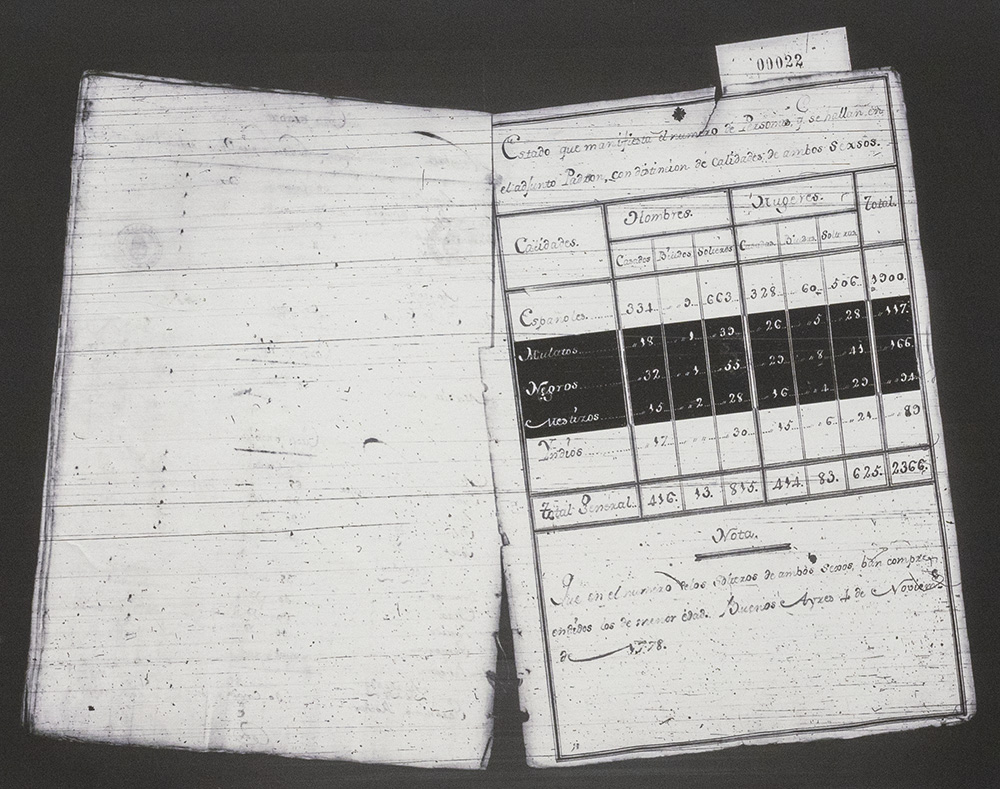 00022
Estado que manifiesta el numero de Personas, q. se hallan en
el adjunto Padron, con distincion de calidades, de ambos Sexsos.
Calidades. Hombres. Mugeres. Total.
Casados Viudos Solteros Casadas Viudas Solteras
Españoles 334 9 663 328 60 506 1900
Mulatos 18 1 39 26 5 28 117
Negros 32 1 55 29 8 41 166
Mestizos 15 2 28 16 4 29 94
Yndios 17 30 15 6 21 89
Total General. 416. 13. 815. 414. 83. 625. 2366.
Nota.
Que en el numero de los solteros de ambos sexos, ban compre
endidos los de menor edad. Buenos Ayres 4 de Noviem
de 1778.